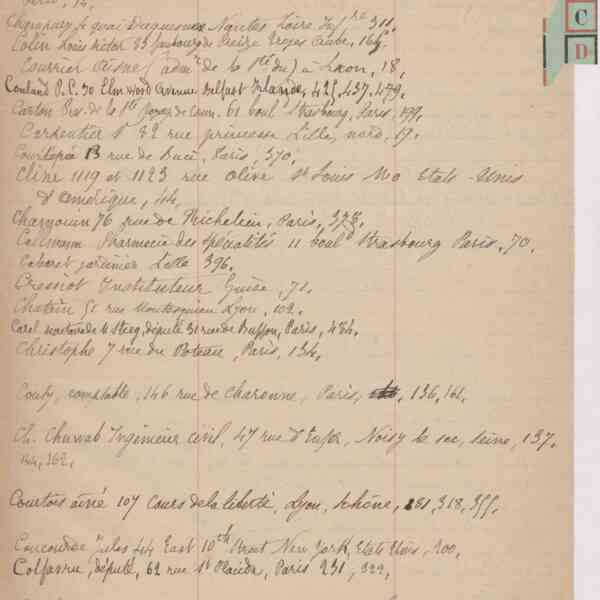 Paris, 14.
quai Duquesne Nantes Loire Infre 311,
Colin Louis Victor 83 faubourg de Preize Troyes Aube, 165.
Courrier Aisne (admr de la Sté du) à Laon, 18,
Conland P.C. 30 Elmwood Avenue Belfast Irlande, 425, 437, 479,
Carton de la Sté 61 boul Strasbourg, Paris, 199.
Carpentier 82 rue princesse Lille, nord, 19.
Courtépée 13 rue de Buci, Paris, 370,
Cline 1119 et 1123 rue Olive St Louis Mo Etats-Unis
d'amérique, 44,
Charzouin 76 rue de Richelieu, Paris, 378,
Pharmacie des Spécialités 11 bould Strasbourg Paris, 70,
Cabaret jardinier Lille 396,
Cresnot Instituteur Guise, 71,
Chatein 51 rue Montesquieu Lyon, 102,
député 31 rue de Buffon, Paris, 484.
Christophe 7 rue du Poteau, Paris, 134,
Couty, comptable, 146 rue de Charonne, Paris, 136, 161,
Ch. Churab Ingénieur civil, 47 rue d'Enfer, Noisy le sec, Seine, 137.
144, 362,
Courtois aîné 107 Cours de la liberté, Lyon, Rhône, 181, 318, 355,
Concourde Jules 44 East 10th Street New York, Etats Unis, 200,
Colfavru, député, 62 rue St Placide, Paris 231, 322,
C
D